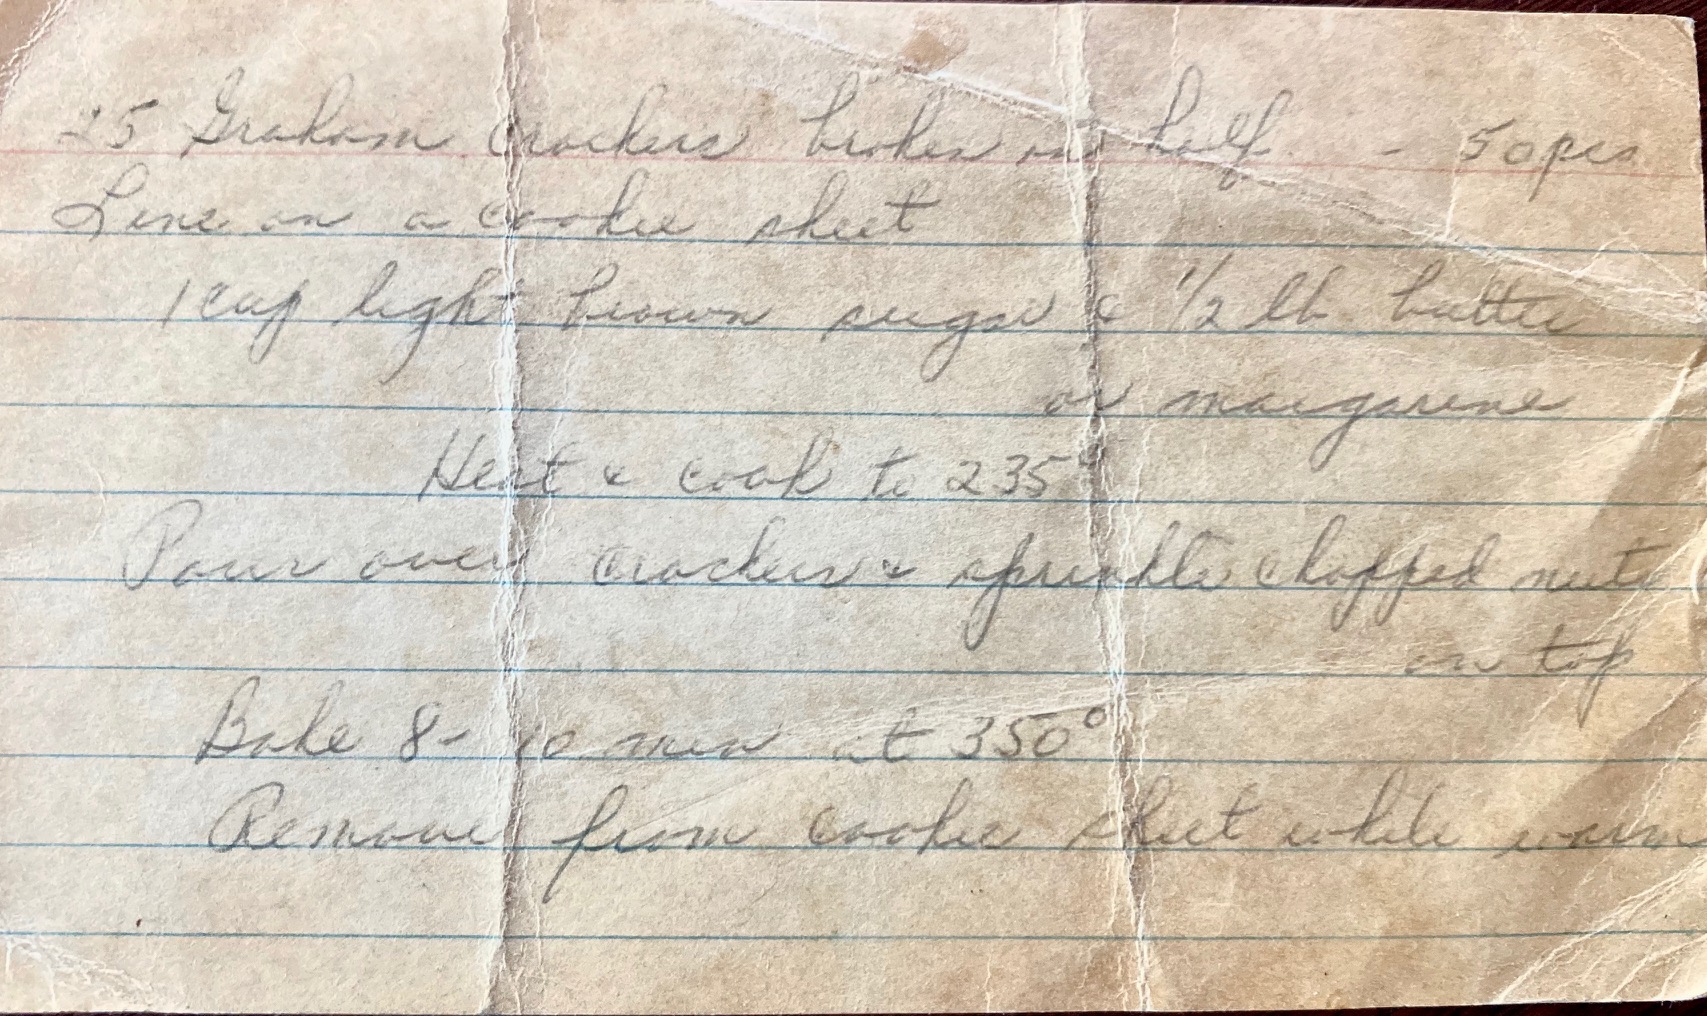 25 Graham Crackers broken in half - 50 pcs
Line on a cookie sheet
1 cup light brown sugar & 1/2 lb butter
or margarine
Heat & cook to 235°
Pour over crackers & sprinkle chopped nuts
on top
Bake 8-10 min at 350°
Remove from cookie sheet while warm